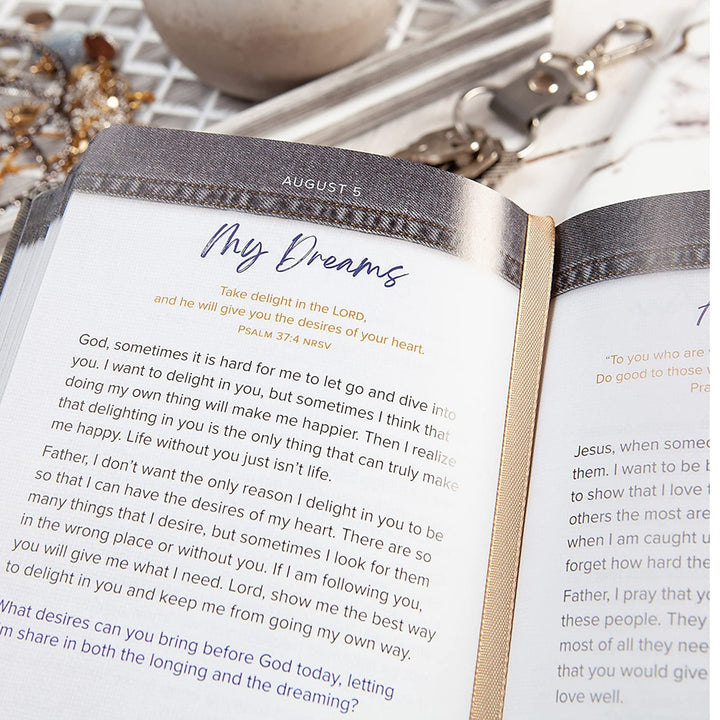 AUGUST 5
My Dreams
Take delight in the LORD,
and he will give you the desires of your heart.
PSALM 37:4 NRSV
God, sometimes it is hard for me to let go and dive into
you. I want to delight in you, but sometimes I think that
doing my own thing will make me happier. Then I realize
that delighting in you is the only thing that can truly make
me happy. Life without you just isn't life.
Father, I don't want the only reason I delight in you to be
so that I can have the desires of my heart. There are so
many things that I desire, but sometimes I look for them
in the wrong place or without you. If I am following you,
you will give me what I need. Lord, show me the best way
to delight in you and keep me from going my own way.
What desires can you bring before God today, letting
share in both the longing and the dreaming?
"To you who are
Do good to those
Jesus, when
them. I want to be
to show that I love
others the most are
when I am caught
forget how hard
Father, I pray that
these people. They
most of all they
that you would give
love well.